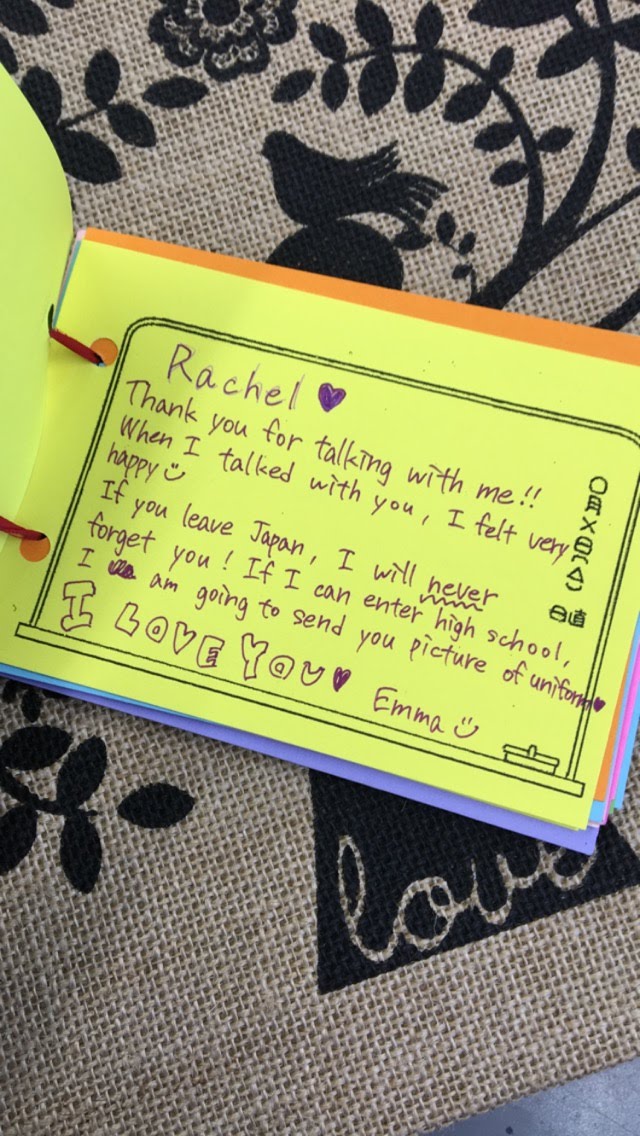 Rachel ♥
Thank you for talking with me!!
When I talked with you, I felt very
happy
If you leave Japan, I will never
forget you! If I can enter high school,
I am going to send you picture of uniform♥
I LOVE YOU♥
Emma
月
日
日直
love